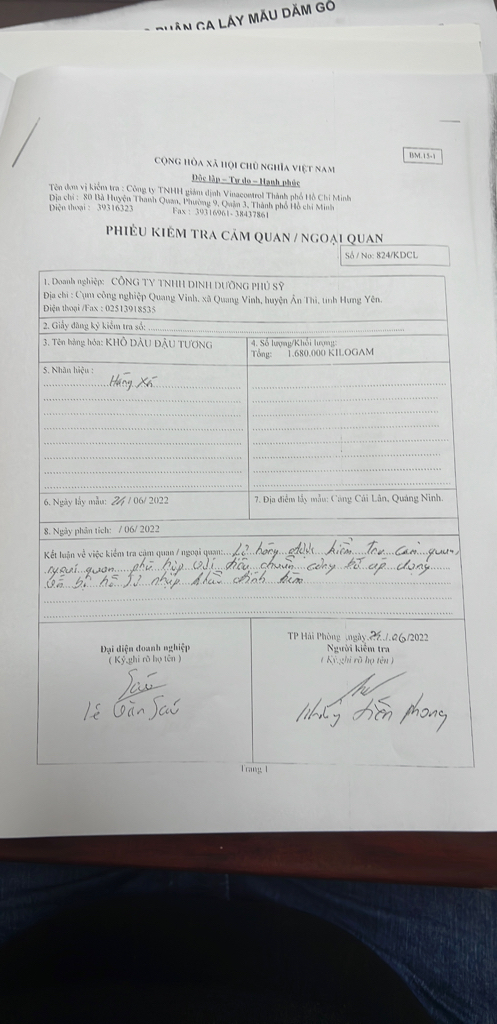 PHÂN CA LẤY MẪU DĂM GỖ
BM.15-1
CỘNG HÒA XÃ HỘI CHỦ NGHĨA VIỆT NAM
Độc lập – Tự do – Hạnh phúc
Tên đơn vị kiểm tra : Công ty TNHH giám định Vinacontrol Thành phố Hồ Chí Minh
Địa chỉ : 80 Bà Huyện Thanh Quan, Phường 9, Quận 3, Thành phố Hồ chí Minh
Điện thoại : 39316323 Fax : 39316961- 38437861
PHIẾU KIỂM TRA CẢM QUAN / NGOẠI QUAN
Số / No: 824/KDCL
1. Doanh nghiệp: CÔNG TY TNHH DINH DƯỠNG PHÚ SỸ
Địa chỉ : Cụm công nghiệp Quang Vinh, xã Quang Vinh, huyện Ân Thi, tỉnh Hưng Yên.
Điện thoại /Fax : 02513918535
2. Giấy đăng ký kiểm tra số:
3. Tên hàng hóa: KHÔ DẦU ĐẬU TƯƠNG
4. Số lượng/Khối lượng:
Tổng: 1.680.000 KILOGAM
5. Nhãn hiệu :
Hàng Xá
6. Ngày lấy mẫu: 24 / 06/ 2022
7. Địa điểm lấy mẫu: Cảng Cái Lân, Quảng Ninh.
8. Ngày phân tích: / 06/ 2022
Kết luận về việc kiểm tra cảm quan / ngoại quan: Lô hàng được kiểm tra cảm quan,
ngoại quan phù hợp với tiêu chuẩn công bố áp dụng
hồ sơ nhập khẩu đính kèm
TP Hải Phòng ,ngày 24 / 06/2022
Đại diện doanh nghiệp
( Ký,ghi rõ họ tên )
Người kiểm tra
( Ký,ghi rõ họ tên )
Lê Văn Sáu
tiến phong
Trang 1